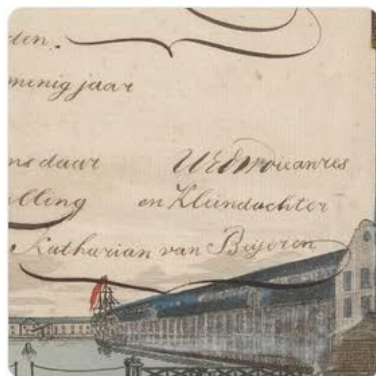 den.
menig jaar
ns daar
lling en Kleindochter
Katharian van Beijeren